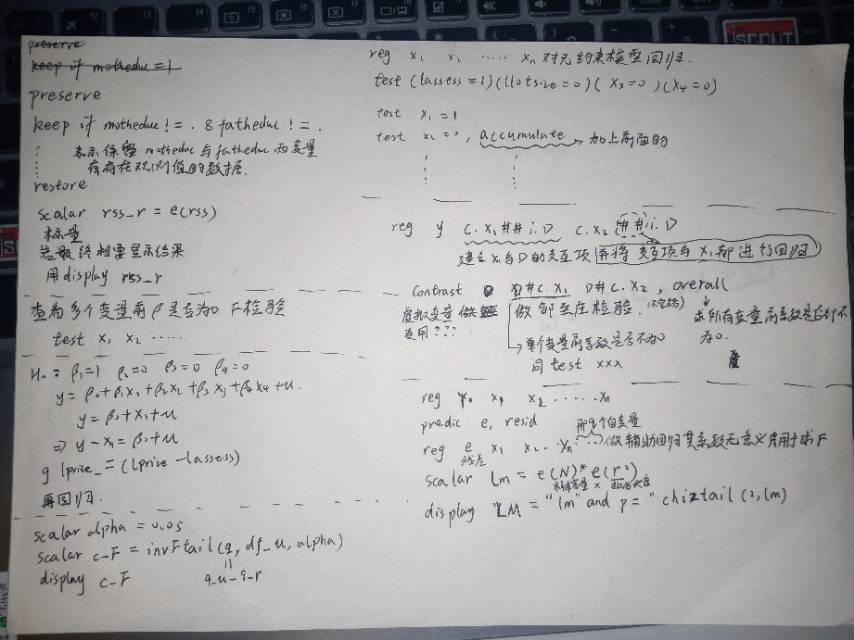 preserve
keep if motheduc = 1
preserve
keep if motheduc != . & fatheduc != .
表示保留 motheduc 与 fatheduc 两变量
存有在观测值的数据.
restore
scalar rss_r = e(rss)
标量
若最终想要显示结果
用 display rss_r
查看多个变量前 β 是否为0 F检验
test x₁ x₂ ......
H₀: β₁=1 β₂=0 β₃=0 β₄=0
y = β₀+β₁x₁+β₂x₂+β₃x₃+β₄x₄+u.
y = β₀+x₁+u
⇒ y-x₁ = β₀+u
g lprice_ = (lprice-lassess)
再回归.
scalar alpha = 0.05
scalar c-F = invFtail(q, df_u, alpha)
display c-F
q_u-q_r
reg x₁ x₂ ..... xn 对无约束模型回归.
test (lassess=1)(llotsize=0)(x₃=0)(x₄=0)
test x₁ = 1
test x₂ = 0, accumulate 加上前面的
reg y c.x₁##i.D c.x₂##i.D
建立x₁与D的交互项 再将交互项与x₁都进行回归
contrast D D#c.x₁ D#c.x₂, overall
虚拟变量
使用???
做邹至庄检验.
求所有变量前系数是否都不
为0.
单个变量前系数是否不为0
同 test xxx
reg y x₁ x₂ ...... xn
predic e, resid
reg e x₁ x₂ .. xn 做辅助回归其系数无意义只用于求F
残差
scalar lm = e(N)*e(r²)
样本容量 ×
display "LM = "lm" and p = " chi2tail(2,lm)